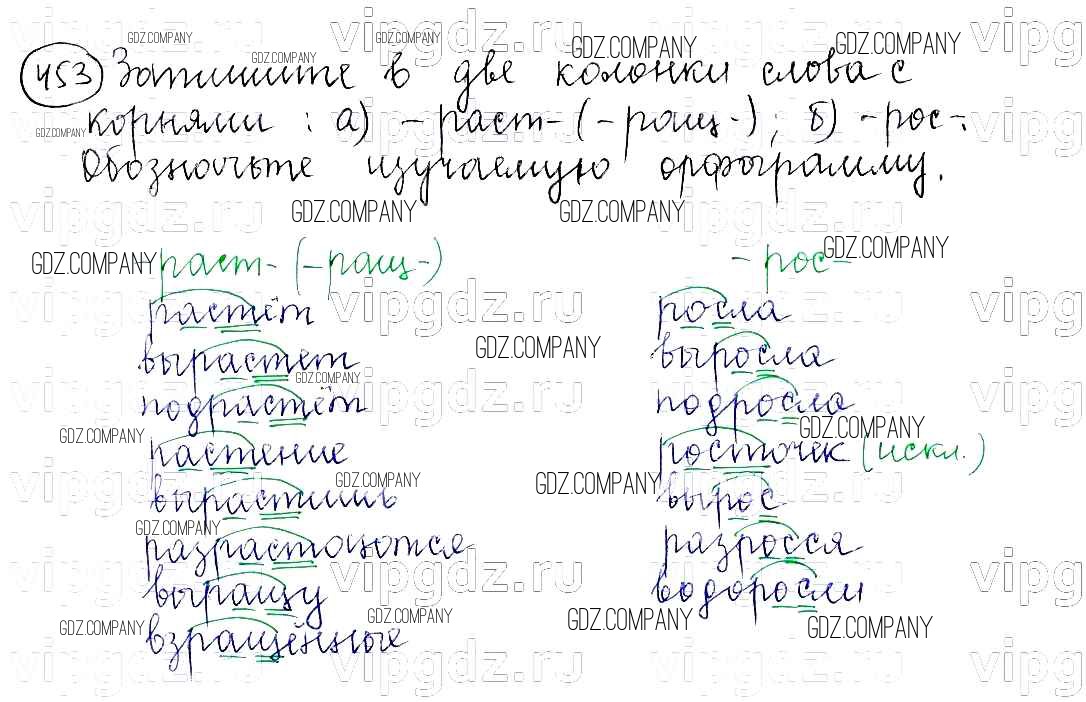 453 Запишите в две колонки слова с
корнями: а) -раст- (-ращ-); б) -рос-.
Обозначьте изучаемую орфограмму.
-раст- (-ращ-) -рос-
растёт росла
вырастет выросла
подрастёт подросла
растение росточек (искл.)
вырастишь вырос
разрастаются разросся
выращу водоросли
взращённые
GDZ.COMPANY
vipgdz.ru